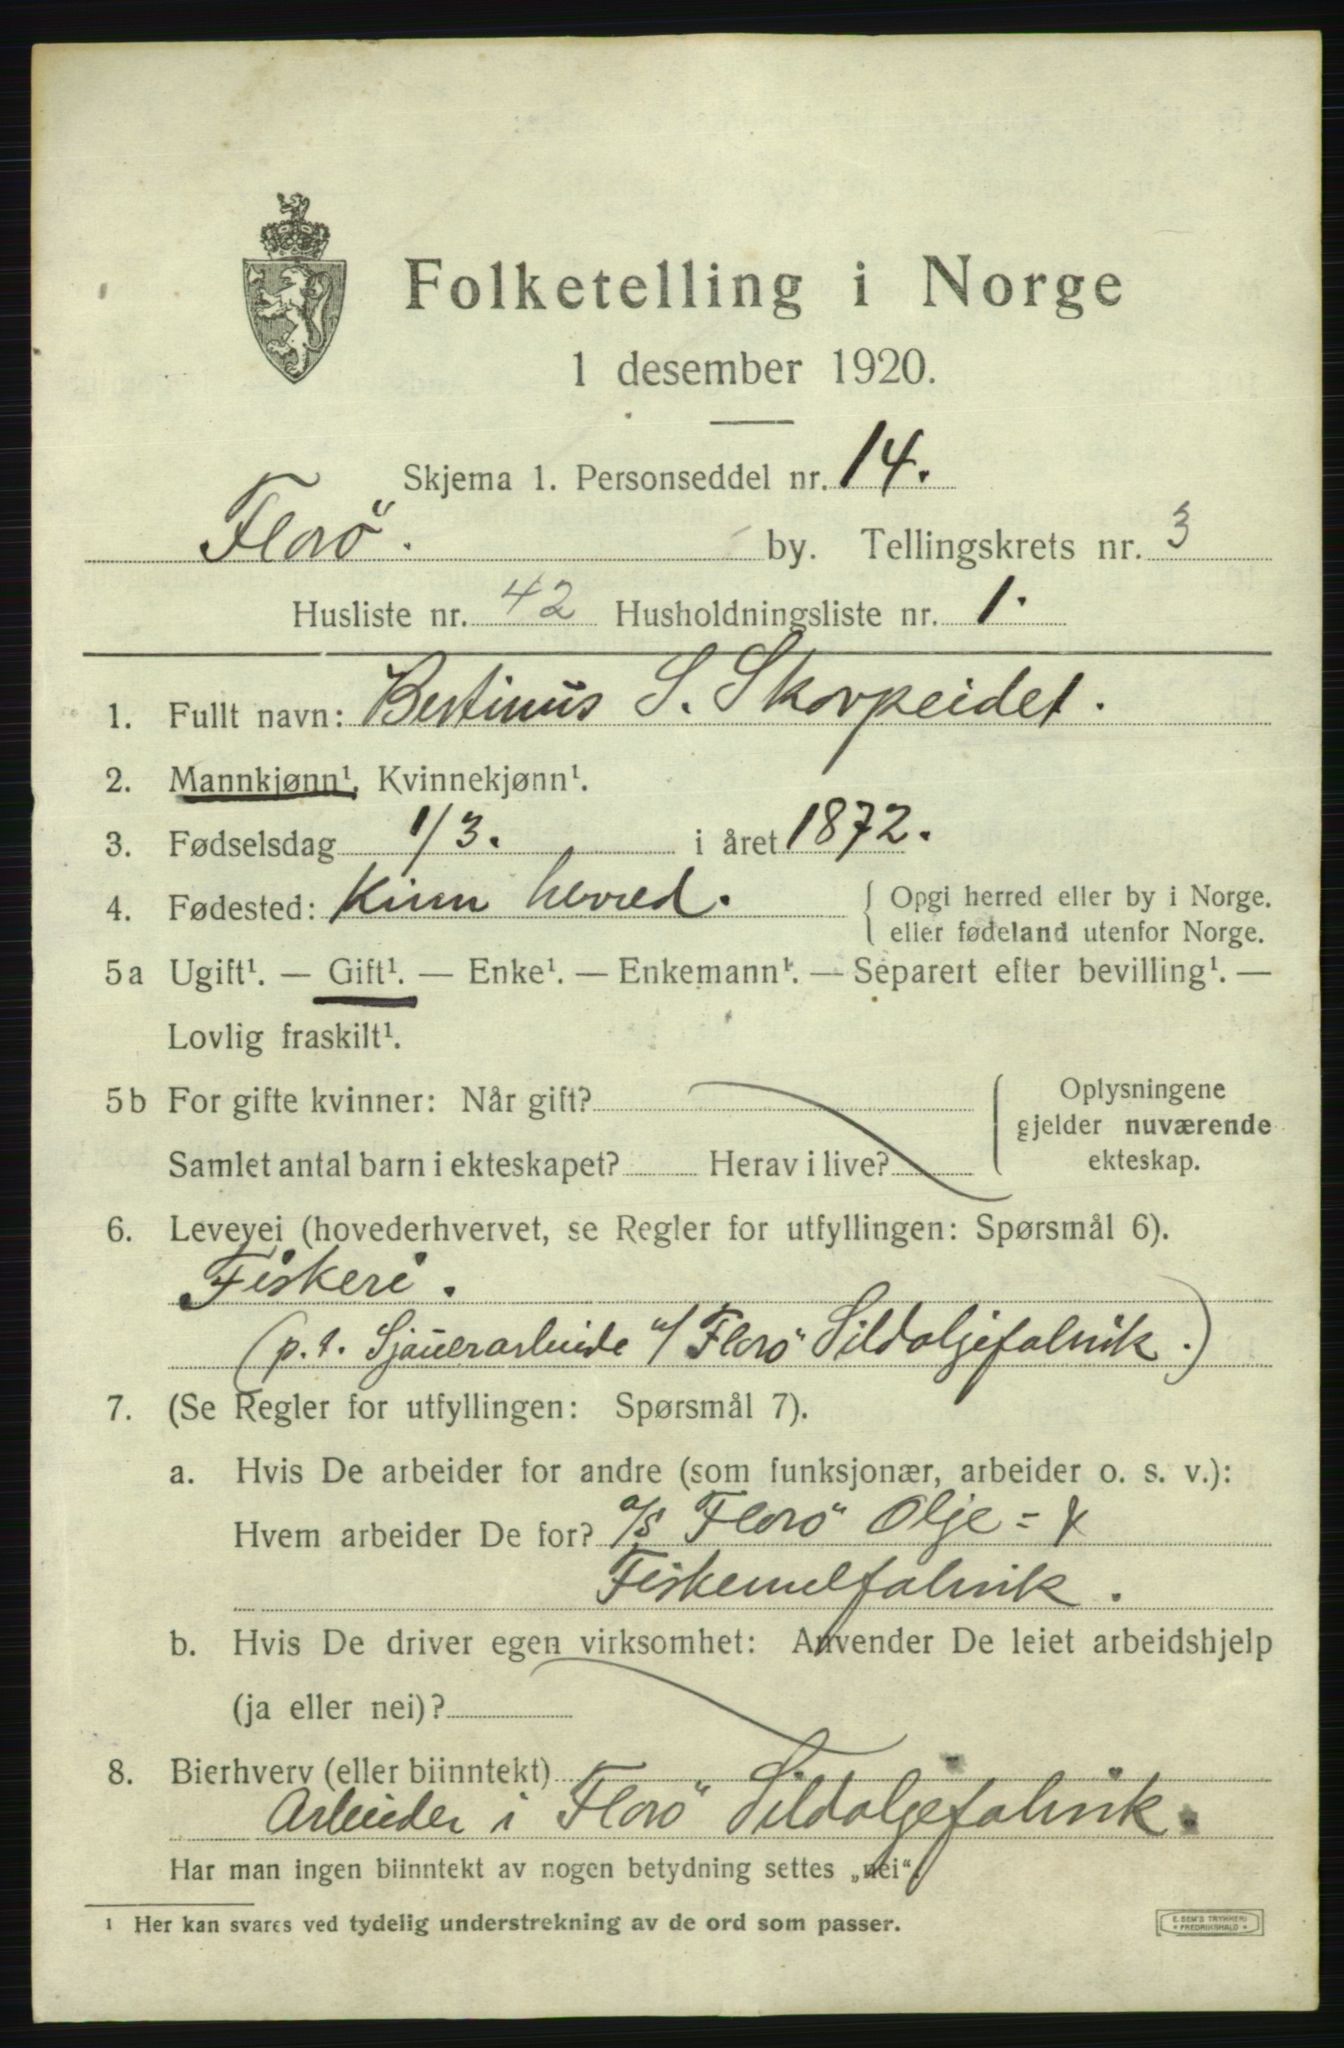 Folketelling i Norge
1 desember 1920.
Skjema 1. Personseddel nr. 14.
Florö. by. Tellingskrets nr. 3
Husliste nr. 42 Husholdningsliste nr. 1.
1. Fullt navn: Bertinus S. Skorpeidet.
2. Mannkjønn¹, Kvinnekjønn¹.
3. Fødselsdag 1/3. i året 1872.
4. Fødested: Kinn herred. { Opgi herred eller by i Norge.
eller fødeland utenfor Norge.
5a Ugift¹. — Gift¹. — Enke¹. — Enkemann¹. — Separert efter bevilling¹. —
Lovlig fraskilt¹.
5b For gifte kvinner: Når gift? Oplysningene
gjelder nuværende
Samlet antal barn i ekteskapet? Herav i live? ekteskap.
6. Levevei (hovederhvervet, se Regler for utfyllingen: Spørsmål 6).
Fiskeri.
(p.t. Sjauerarbeide v/ Florö Sildoljefabrik.)
7. (Se Regler for utfyllingen: Spørsmål 7).
a. Hvis De arbeider for andre (som funksjonær, arbeider o. s. v.):
Hvem arbeider De for? A/S Florö Olje= &
Fiskemelfabrik.
b. Hvis De driver egen virksomhet: Anvender De leiet arbeidshjelp
(ja eller nei)?
8. Bierhverv (eller biinntekt)
Arbeider i Florö Sildoljefabrik.
Har man ingen biinntekt av nogen betydning settes „nei".
¹ Her kan svares ved tydelig understrekning av de ord som passer.
E. SEM'S TRYKKERI
FREDRIKSHALD